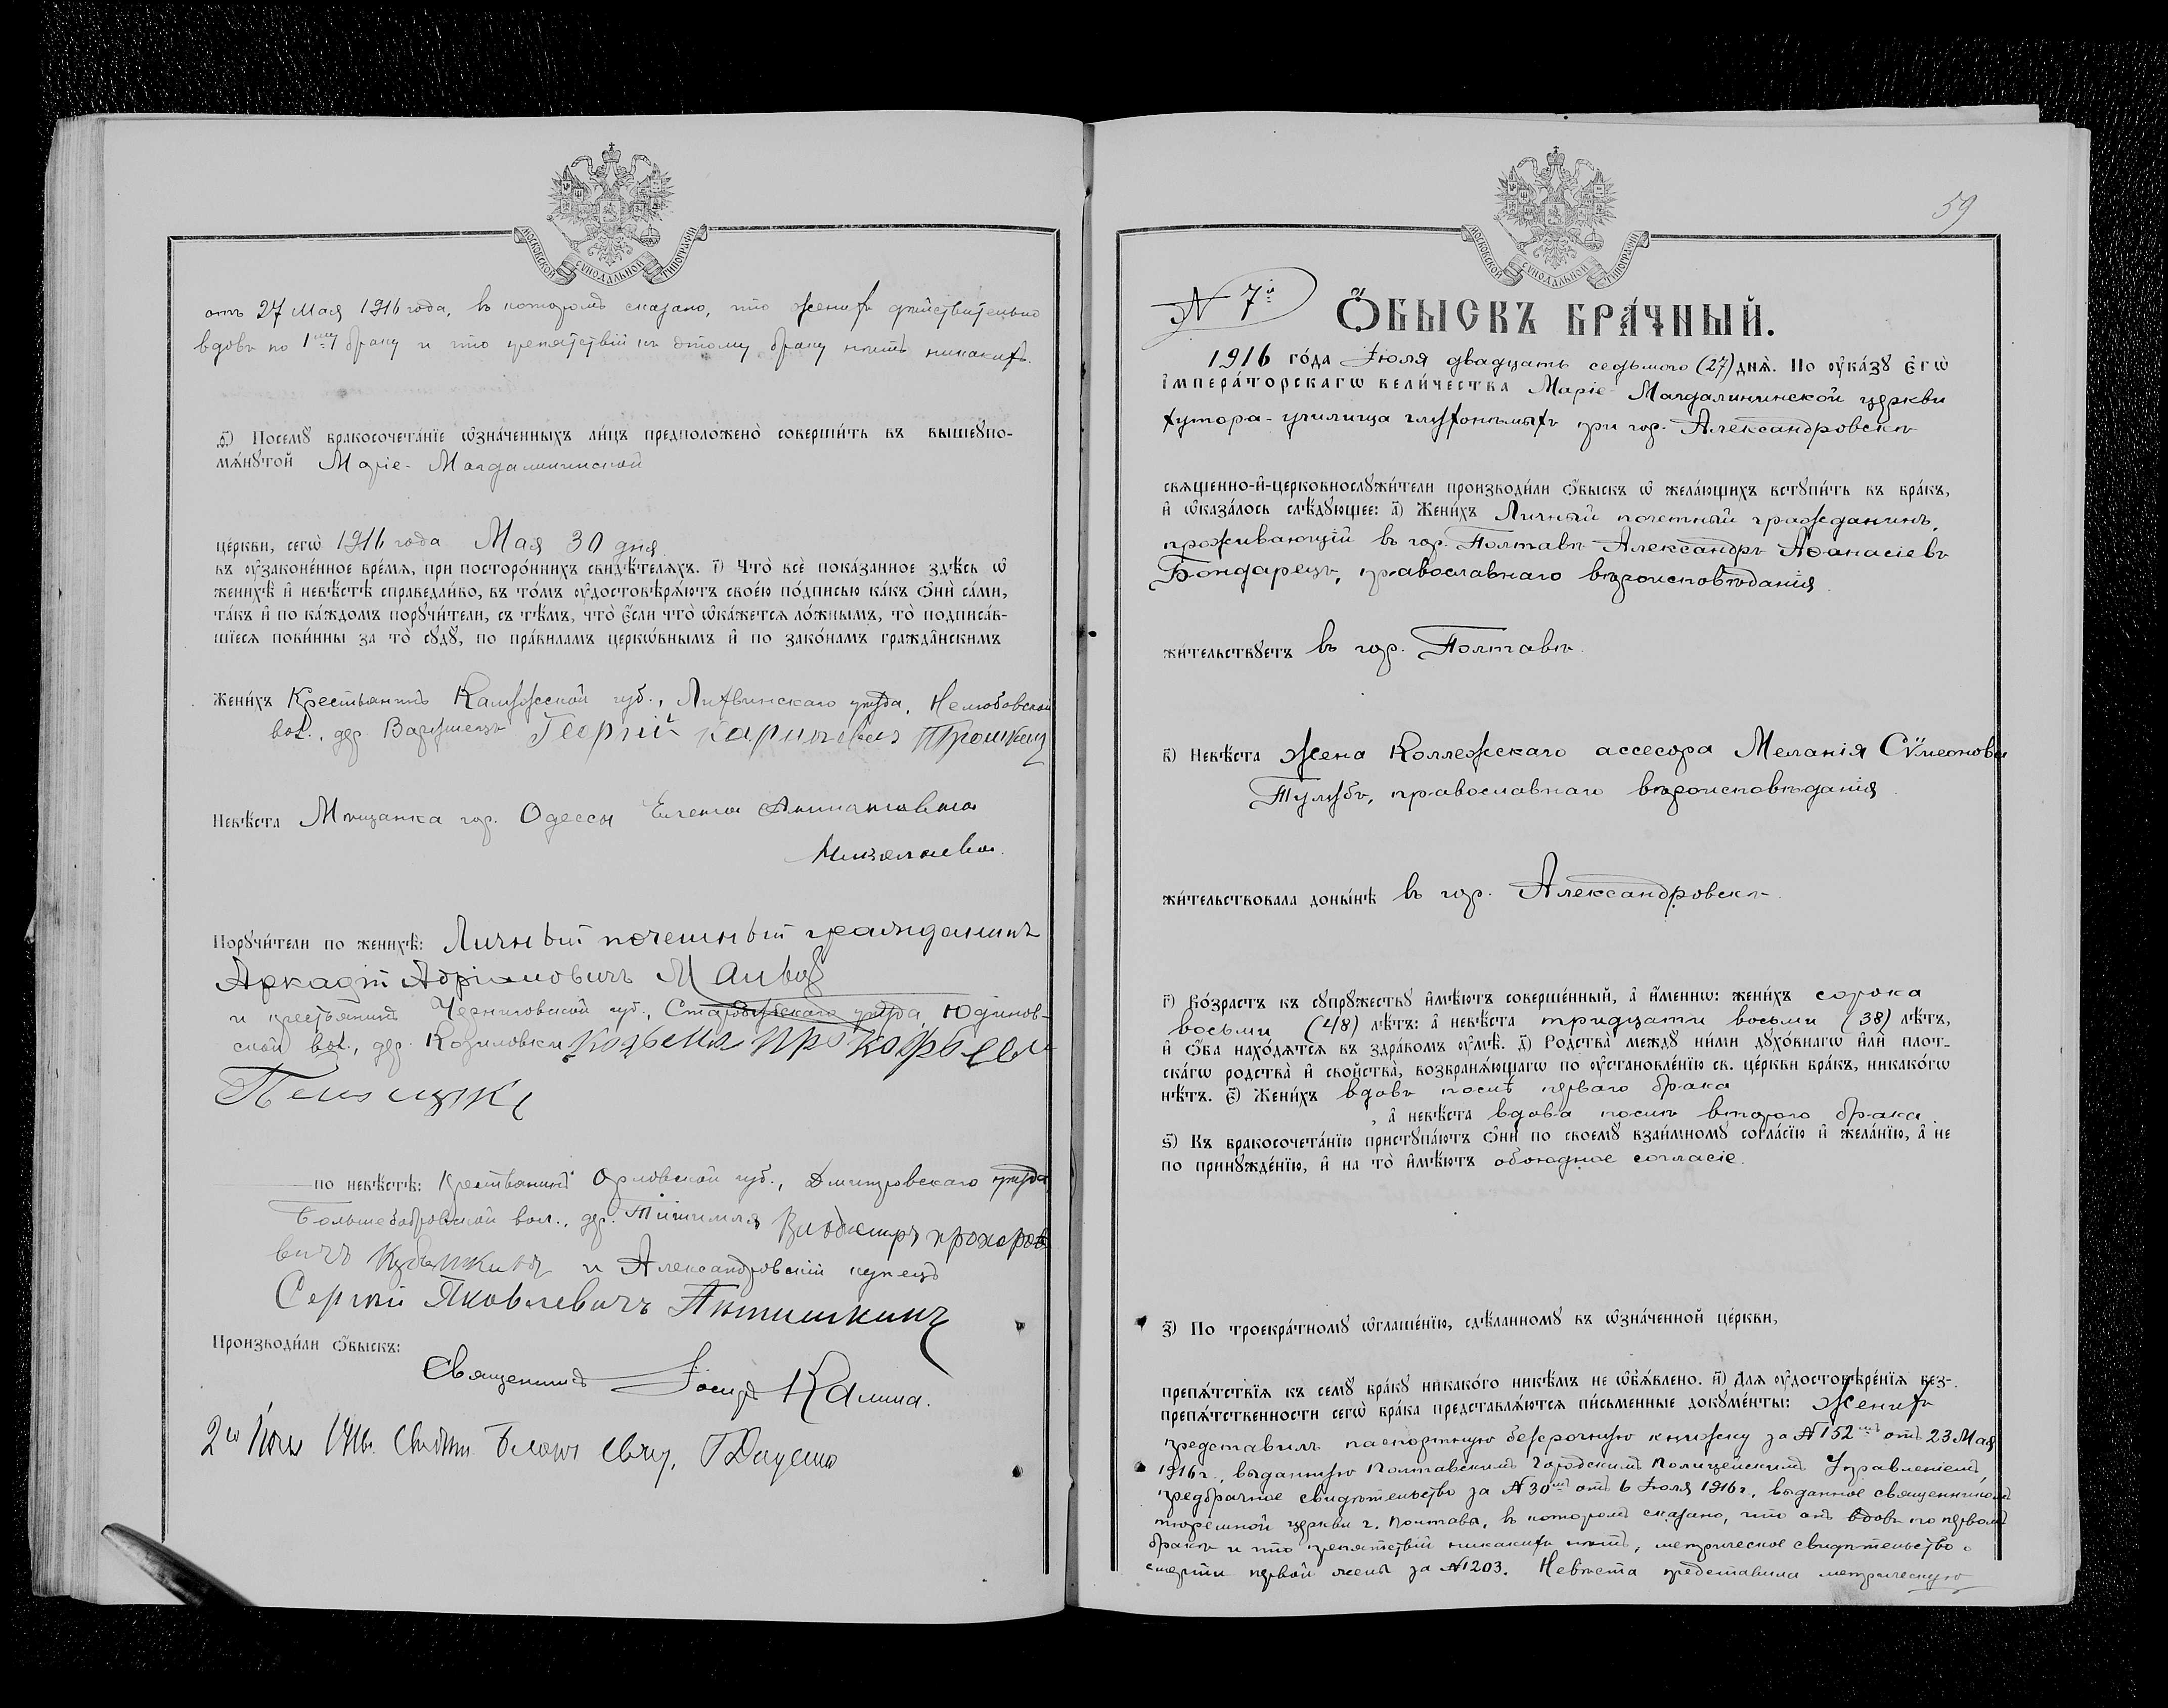 МОСКОВСКОЙ СѴНОДАЛЬНОЙ ТИПОГРАФІИ
отъ 27 Мая 1916 года, въ которомъ сказано, что женихъ дѣйствительно
вдовъ по 1му браку и что препятствій къ этому браку нѣтъ никакихъ.
д҃і) Посемꙋ̀ бракосочета́нїе ѡ҆зна́ченныхъ ли́цъ предположено̀ соверши́ть въ вышеꙋпо-
мѧ́нꙋтой Маріе-Магдалининской
це́ркви, сегѡ̀ 1916 года Мая 30 дня
въ ᲂу҆зако́ненное вре́мѧ, при посторо́ннихъ свидѣ́телѧхъ. і҃) Что̀ всѐ пока́занное здѣ́сь ѡ҆
женихѣ̀ и҆ невѣ́стѣ справедли́во, въ то́мъ ᲂу҆достовѣрѧ́ютъ свое́ю по́дписью ка́къ ѻ҆нѝ са́ми,
та́къ и҆ по ка́ждомъ порꙋчи́тели, съ тѣ́мъ, что̀ є҆́сли что̀ ѡ҆ка́жетсѧ ло́жнымъ, то̀ подписа́в-
шїесѧ пови́нны за то̀ сꙋдꙋ̀, по пра́виламъ церко́внымъ и҆ по зако́намъ гражда́нскимъ
Жени́хъ Крестьянинъ Калужской губ., Лихвинскаго уѣзда, Нелюбовской
вол., дер. Георгій Карповичъ Трошкин
Невѣ́ста Мѣщанка гор. Одессы Елена
Николаева.
Порꙋчи́тели по женихѣ̀: Личный почетный гражданинъ
Аркадій Адріановичъ
и крестьянинъ Черниговской губ., Стародубскаго уѣзда, Юдинов-
ской вол., дер. Козиловки
по невѣ́стѣ: Крестьянинъ Орловской губ., Дмитровскаго уѣзда
Большебобровской вол., дер. Владимир Прохоро
вичъ и Александровскій купецъ
Сергѣй Яковлевичъ Антишкинъ
Производи́ли ѻ҆́быскъ:
Священникъ Іосифъ Калина.
2го 1916.
59
МОСКОВСКОЙ СѴНОДАЛЬНОЙ ТИПОГРАФІИ
№ 7й
Ѻ҆́БЫСКЪ БРА́ЧНЫЙ.
1916 го́да Іюля двадцать седьмого (27) днѧ̀. По ᲂу҆ка́зꙋ Є҆гѡ̀
и҆мпера́торскагѡ вели́чества Маріе-Магдалининской церкви
хутора-училища глухонѣмыхъ при гор. Александровскѣ
свѧще́нно-и҆-церковнослꙋжи́тели производи́ли ѻ҆́быскъ ѡ҆ жела́ющихъ встꙋпи́ть въ бра́къ,
и҆ ѡ҆каза́лось слѣ́дꙋющее: а҃) Жени́хъ Личный почетный гражданинъ,
проживающій въ гор. Полтавѣ Александръ Аѳанасіевъ
Бондарецъ, православнаго вѣроисповѣданія.
жи́тельствꙋетъ въ гор. Полтавѣ.
в҃) Невѣ́ста жена Коллежскаго ассесора Меланія Сѵмеоновна
Тулубъ, православнаго вѣроисповѣданія.
жи́тельствовала доны́нѣ въ гор. Александровскѣ.
г҃) Во́зрастъ къ сꙋпрꙋ́жествꙋ и҆мѣ́ютъ соверше́нный, а҆ и҆́меннѡ: жени́хъ сорока
восьми (48) лѣ́тъ: а҆ невѣ́ста тридцати восьми (38) лѣ́тъ,
и҆ ѻ҆́ба нахо́дѧтсѧ въ здра́вомъ ᲂу҆мѣ̀. д҃) Родства̀ междꙋ̀ ни́ми дꙋхо́внагѡ и҆лѝ плот-
ска́гѡ родства̀ и҆ сво́йства, возбранѧ́ющагѡ по ᲂу҆становле́нїю св. це́ркви бра́къ, никако́гѡ
нѣ́тъ. є҃) Жени́хъ вдовъ послѣ перваго брака
, а҆ невѣ́ста вдова послѣ второго брака.
ѕ҃) Къ бракосочета́нїю пристꙋпа́ютъ ѻ҆нѝ по своемꙋ̀ взаи́мномꙋ согла́сїю и҆ жела́нїю, а҆ не
по принꙋжде́нїю, и҆ на то̀ и҆мѣ́ютъ обоюдное согласіе.
з҃) По троекра́тномꙋ ѡ҆глаше́нїю, сдѣ́ланномꙋ въ ѡ҆зна́ченной це́ркви,
препѧ́тствїѧ къ семꙋ̀ бра́кꙋ никако́го никѣ́мъ не ѡ҆б̾ѧ́влено. и҃) Длѧ ᲂу҆достовѣре́нїѧ без-
препѧ́тственности сегѡ̀ бра́ка представлѧ́ютсѧ пи́сьменные докꙋме́нты: Женихъ
представилъ паспортную безсрочную книжку за № 152мъ отъ 23 Мая
1916 г., выданную Полтавскимъ Городскимъ Полицейскимъ Управленіемъ,
предбрачное свидѣтельство за № 30мъ отъ 6 Іюля 1916 г., выданное священникомъ
тюремной церкви г. Полтавы, въ которомъ сказано, что онъ вдовъ по первомъ
бракѣ и что препятствій никакихъ нѣтъ, метрическое свидѣтельство о
смерти первой жены за № 1203. Невѣста представила метрическую